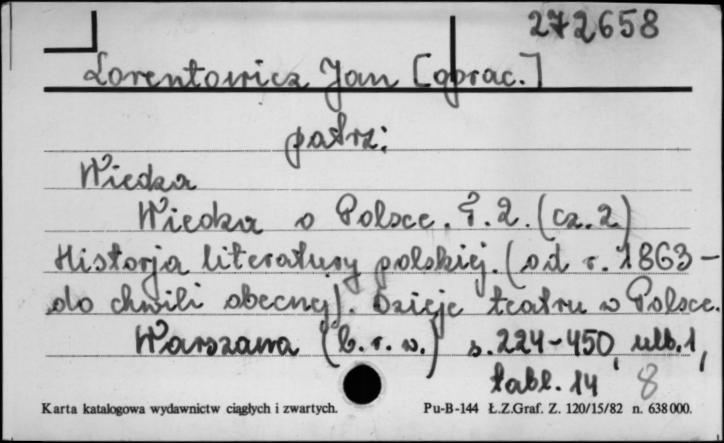 272658
Lorentowicz Jan [oprac.]
patrz:
Wiedza
Wiedza o Polsce. T.2. (cz.2)
Historja literatury polskiej. (od r. 1863-
do chwili obecnej). Dzieje teatru w Polsce.
Warszawa (b.r.w.) s.224-450, ulb.1,
tabl. 14 8
Karta katalogowa wydawnictw ciągłych i zwartych. Pu-B-144 Ł.Z.Graf. Z. 120/15/82 n. 638000.